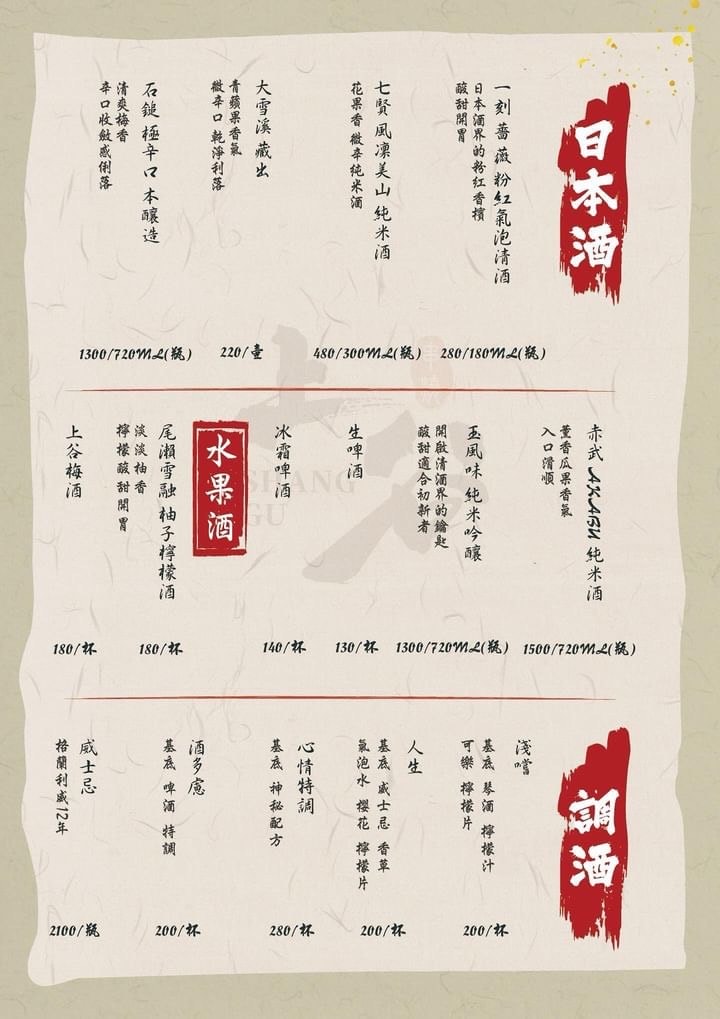 日本酒
一刻 薔薇 粉紅氣泡清酒
日本酒界的粉紅香檳
酸甜開胃
280/180ML(瓶)
七賢 風凜美山 純米酒
花果香 微辛純米酒
480/300ML(瓶)
大雪溪 藏出
青蘋果香氣
微辛口 乾淨利落
220/壺
石鎚 極辛口 本釀造
清爽梅香
辛口收斂感俐落
1300/720ML(瓶)
赤武 AKABU 純米酒
薰香瓜果香氣
入口滑順
1500/720ML(瓶)
玉風味 純米吟釀
開啟清酒界的鑰匙
酸甜適合初新者
1300/720ML(瓶)
生啤酒
130/杯
冰霜啤酒
140/杯
水果酒
尾瀨雪融 柚子檸檬酒
淡淡柚香
檸檬酸甜開胃
180/杯
上谷梅酒
180/杯
調酒
淺嚐
基底 琴酒 檸檬汁
可樂 檸檬片
200/杯
人生
基底 威士忌 香草
氣泡水 櫻花 檸檬片
200/杯
心情特調
基底 神秘配方
280/杯
酒多慮
基底 啤酒 特調
200/杯
威士忌
格蘭利威12年
2100/瓶
上谷
SHANG
GU